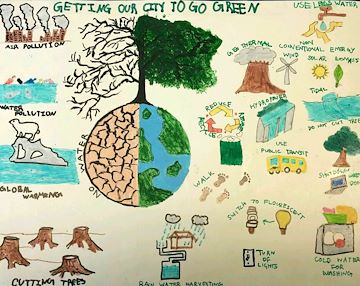 GETTING OUR CITY TO GO GREEN
USE LESS WATER
AIR POLLUTION
WATER POLLUTION
GLOBAL WARMING
CUTTING TREES
NO WATER
GEOTHERMAL
NON CONVENTIONAL ENERGY
WIND
SOLAR
BIOMASS
TIDAL
HYDROPOWER
REDUCE
REUSE
RECYCLE
DO NOT CUT TREES
USE PUBLIC TRANSIT
WALK
SWITCH TO FLUORESCENT
TURN OF LIGHTS
COLD WATER FOR WASHING
RAIN WATER HARVESTING